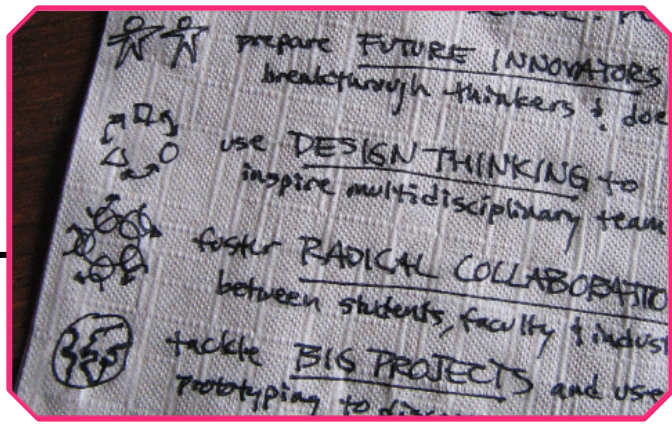 prepare FUTURE INNOVATORS
breakthrough thinkers & doe
use DESIGN THINKING to
inspire multidisciplinary team
foster RADICAL COLLABORATIO
between students, faculty & indust
tackle BIG PROJECTS and use
prototyping to